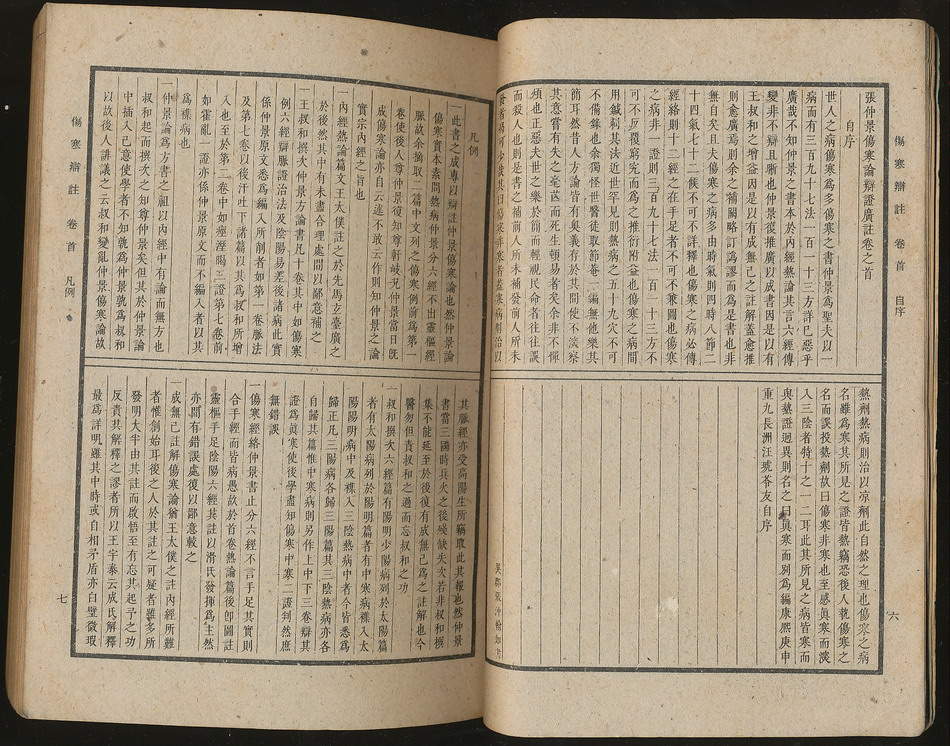 傷寒辯註　卷首　自序
張仲景傷寒論辯證廣註卷之首
自序
世人之病傷寒爲多傷寒之書仲景爲聖夫以一
病而有三百九十七法一百一十三方詳已惡乎
廣哉不知仲景之書本於內經熱論其言六經傳
變非不辯且晰也仲景復推廣以成書因是以有
王叔和之增益因是以有成無己之註解蓋愈推
則愈廣焉則余之補闕略訂譌謬而爲是書也非
無自矣且夫傷寒之病多由時氣則四時八節二
十四氣七十二候不可不詳釋也傷寒之病必傳
經絡則十二經之在手足者不可不兼圖也傷寒
之病非一證則三百九十七法一百一十三方不
可不反覆窮究而爲之推衍附益也傷寒之病間
用鍼刺其法近世罕見則熱病之五十九穴不可
不備錄也余獨怪世醫徒取節菴一編無他樂其
簡耳然昔人方論皆有奧義存於其間使不深察
其意嘗有失之毫釐而死生頓易者矣余非不憚
煩也正惡夫世之樂於簡而輕視民命者往往誤
而殺人也則是書之補前人所未補發前人所未
發者烏可少哉其曰傷寒非寒者蓋寒病則治以
熱劑熱病則治以涼劑此自然之理也傷寒之病
名雖爲寒其所見之證皆熱竊恐後人執傷寒之
名而誤投熱劑故曰傷寒非寒也至感眞寒而深
入三陰者特十之一二耳此其所見之病皆寒而
與熱證迥異則名之曰眞寒而別爲編康熙庚申
重九長洲汪琥苓友自序
六
吳郡張沖翰如書
凡例
一此書之成專以辯註仲景傷寒論也然仲景論
傷寒實本素問熱病仲景分六經不出靈樞經
脈故余摘取二篇中文列之傷寒例前爲第一
卷使後人尊仲景復知尊軒岐況仲景當日旣
成傷寒論亦自云述不敢云作則知仲景之論
實宗內經之旨也
一內經熱論篇文王太僕註之於先馬立臺廣之
於後然其中有未盡合理處間以鄙意補之
一王叔和撰次仲景方論書凡十卷其中如傷寒
例六經辯脈證治法及陰陽易差後諸病此實
係仲景原文悉爲編入所削者如第一卷脈法
及第七卷以後汗吐下諸篇以其爲叔和所增
入也至於第二卷中如痙溼暍三證第七卷前
如霍亂一證亦係仲景原文而不編入者以其
爲襍病也
一仲景論爲方書之祖以內經中有論而無方也
叔和起而撰次之知尊仲景矣但其於仲景論
中插入己意使學者不知孰爲仲景孰爲叔和
以故後人誹議之云叔和變亂仲景傷寒論故
其脈經亦受高陽生所竊取此其報也然仲景
書當三國時兵火之後殘缺失次若非叔和撰
集不能延至於後復有成無己爲之註解也今
醫勿但責叔和之過而忘叔和之功
一叔和撰次六經篇有陽明少陽病列於太陽篇
者有太陽病列於陽明篇者有中寒病襍入太
陽陽明病中及襍入三陰熱病中者今皆悉爲
歸正凡三陽病各歸三陽篇其三陰熱病亦各
自歸其篇惟中寒病則另作上中下三卷辯其
證爲眞寒使後學盡知傷寒中寒二證判然庶
無錯誤
一傷寒經絡仲景書止分六經不言手足其實則
合手經而皆病愚故於首卷熱論篇後卽圖註
靈樞手足陰陽六經其註以滑氏發揮爲主然
亦間有錯誤處復以鄙意較之
一成無己註解傷寒論猶王太僕之註內經所難
者惟創始耳後之人於其註之可疑者雖多所
發明大半由其註而啟悟至有忘其起予之功
反責其解釋之謬者所以王宇泰云成氏解釋
最爲詳明雖其中時或自相矛盾亦白璧微瑕
傷寒辯註　卷首　凡例
七